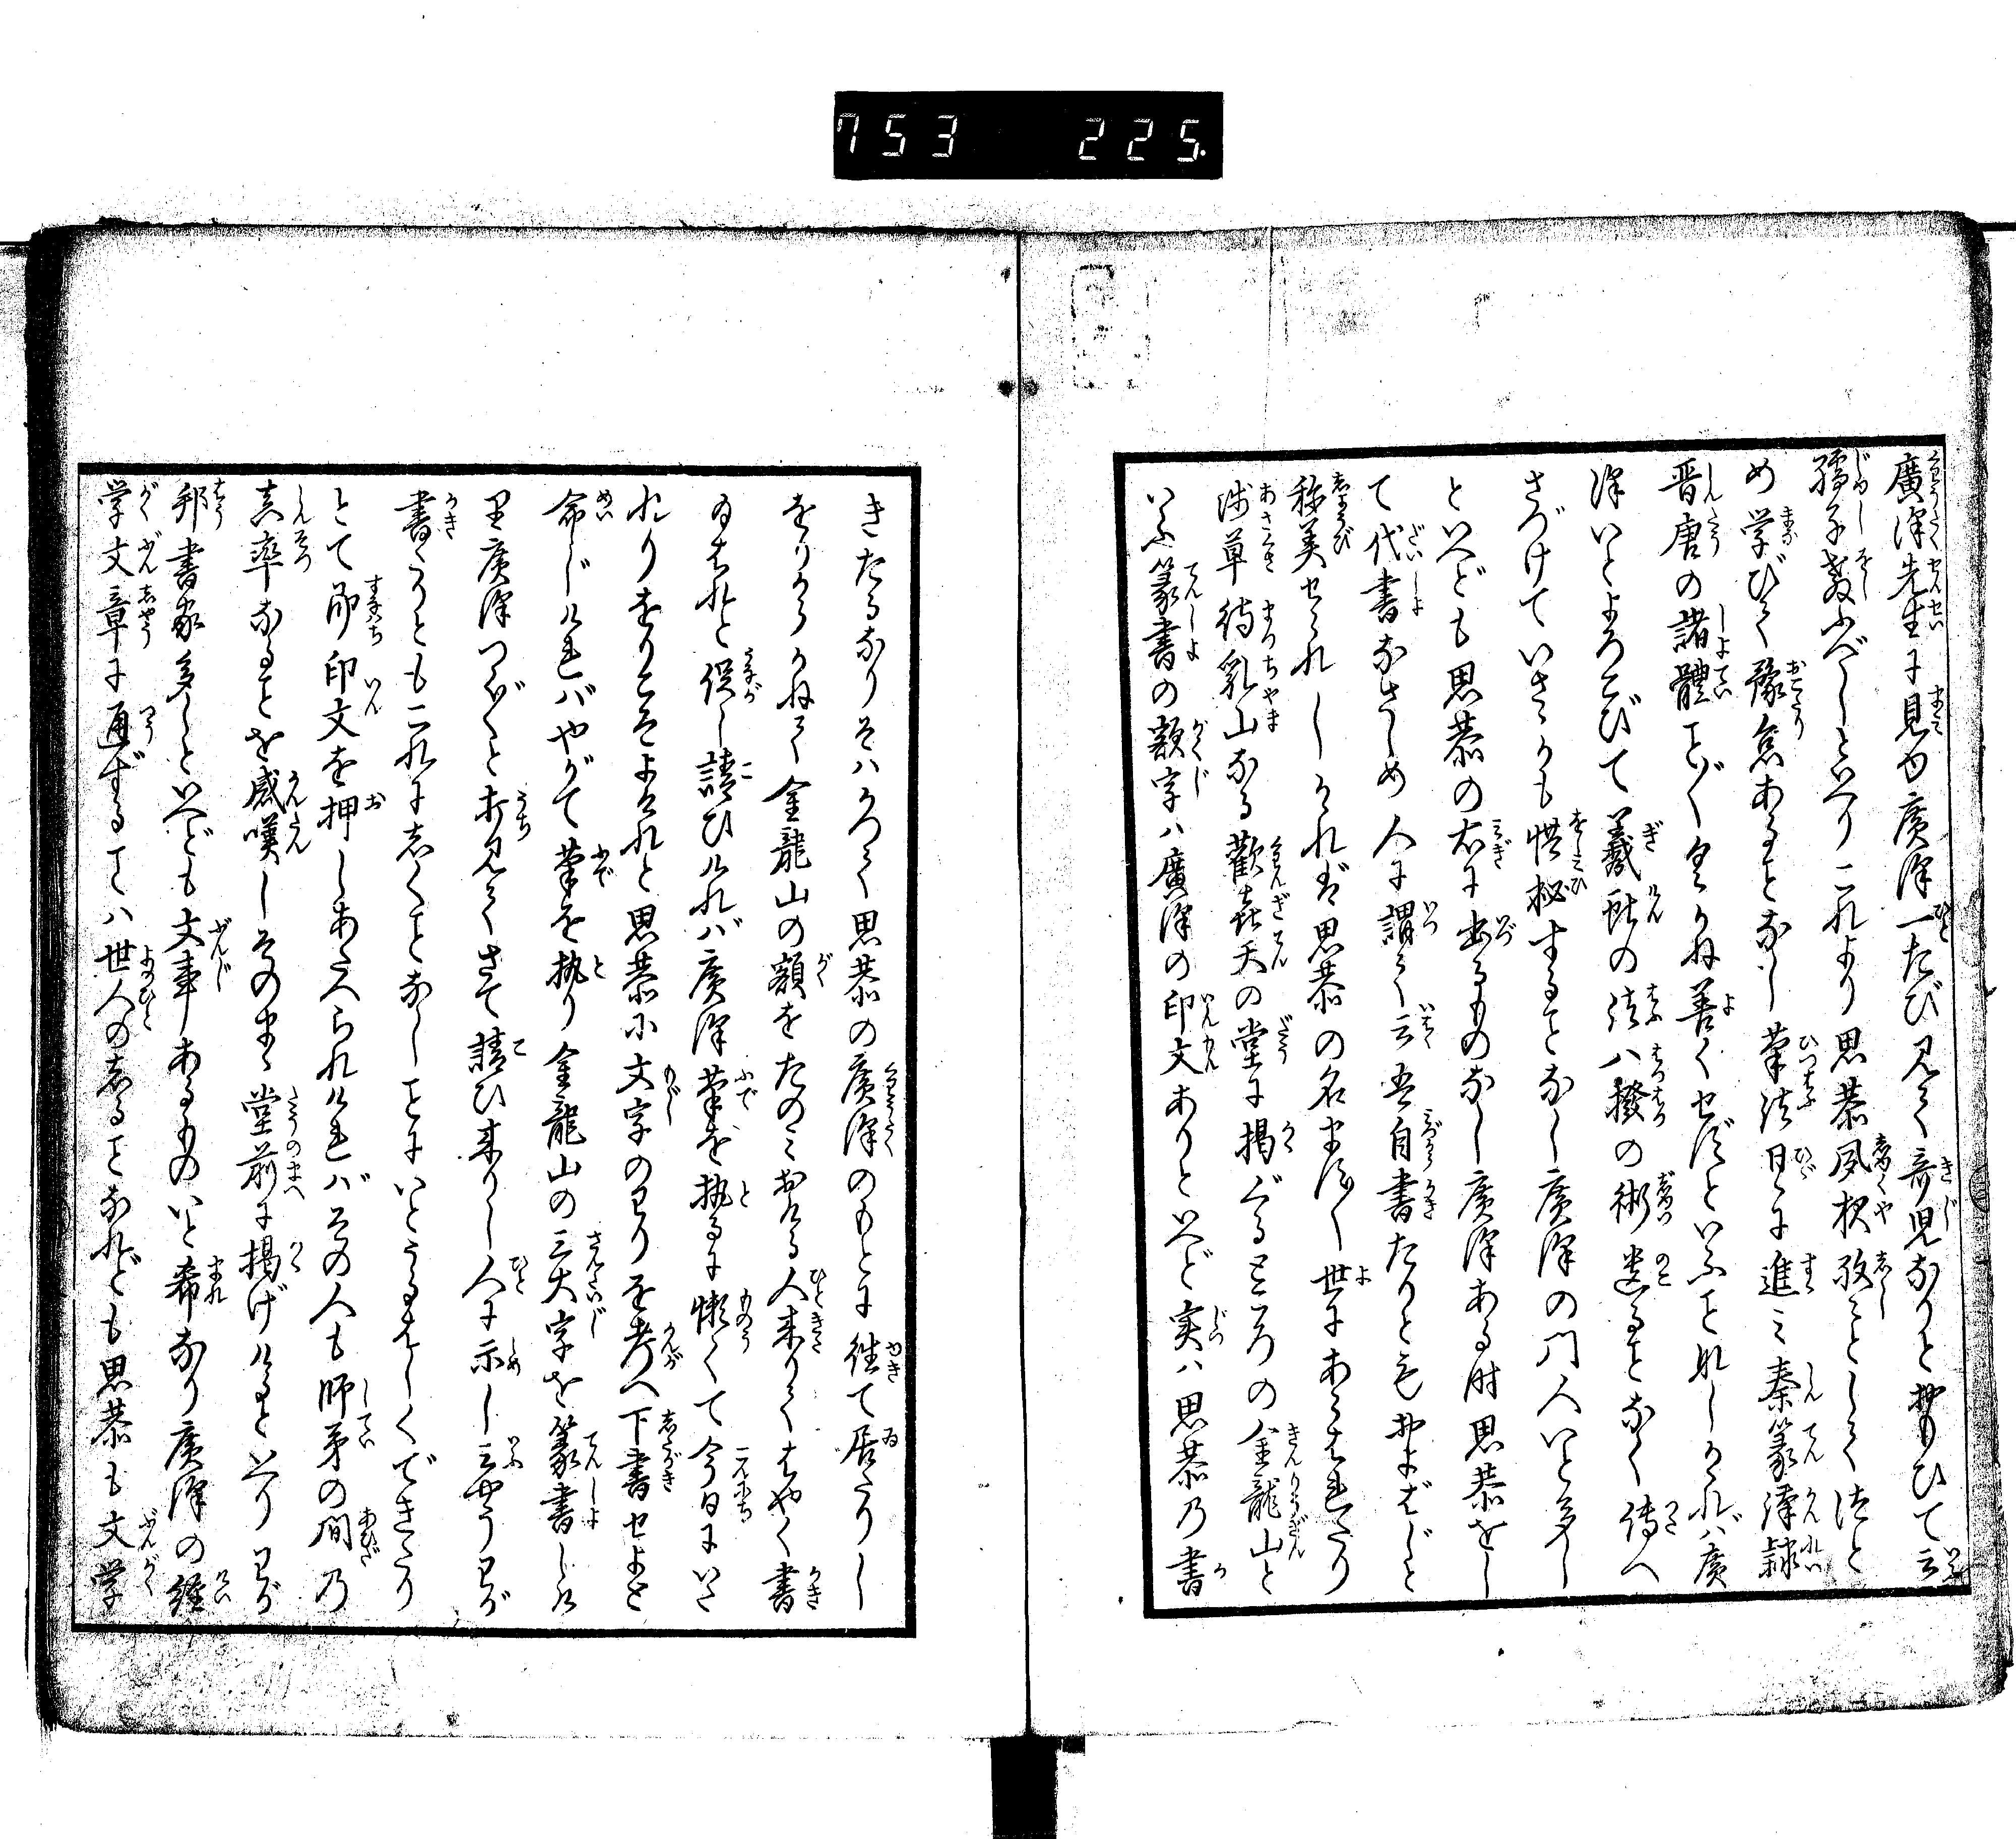 753 225.
廣澤先生に見ゆ廣澤一たび見て奇児なりと始ひて云
孺子教ふべしといへりこれより思恭夙夜孜々として法と
め学びて豫怠あることなし筆法日々に進み秦篆漢隷
晋唐の諸體ことごとくかね善くせずといふこと那しかれバ廣
澤いとよろこびて羲献の法ハ撥の術遺ることなく傳へ
さづけていさゝかも惜秘することなし廣澤の門人いと多し
といへども思恭の右に出るものなし廣澤ある时思恭をし
て代書なさしめ人に謂て云吾自書たりともおよばじと
称美せられしかれば思恭の名ますます世にあらはれたり
浅草待乳山なる歡喜天の堂に掲ぐるところの金龍山と
いふ篆書の額字ハ廣澤の印文ありといへど実ハ思恭乃書
きたるなりそハかつて思恭の廣澤のもとに往て居たりし
をりからかねて金龍山の額をたのミおける人来りてはやく書
ゐはれと促し請ひけれバ廣澤筆を執るに懶くて今日にいた
れりをりこそよけれと思恭に文字のわりを考へ下書せよと
命じけれバやがて筆を執り金龍山の三大字を篆書しけ
里廣澤つくづくと打見てさて請ひ来りし人に示し云やうわが
書くともこれにしくことなしことにいとうるはしくできたり
とて即印文を押しあたへられけれバその人も師弟の间乃
真率なることを感嘆しそのまゝ堂前に掲げけるといへりわが
邦書家多しといへども文事あるものいと希なり廣澤の経
学文章に通ずることハ世人のしることなれども思恭も文学